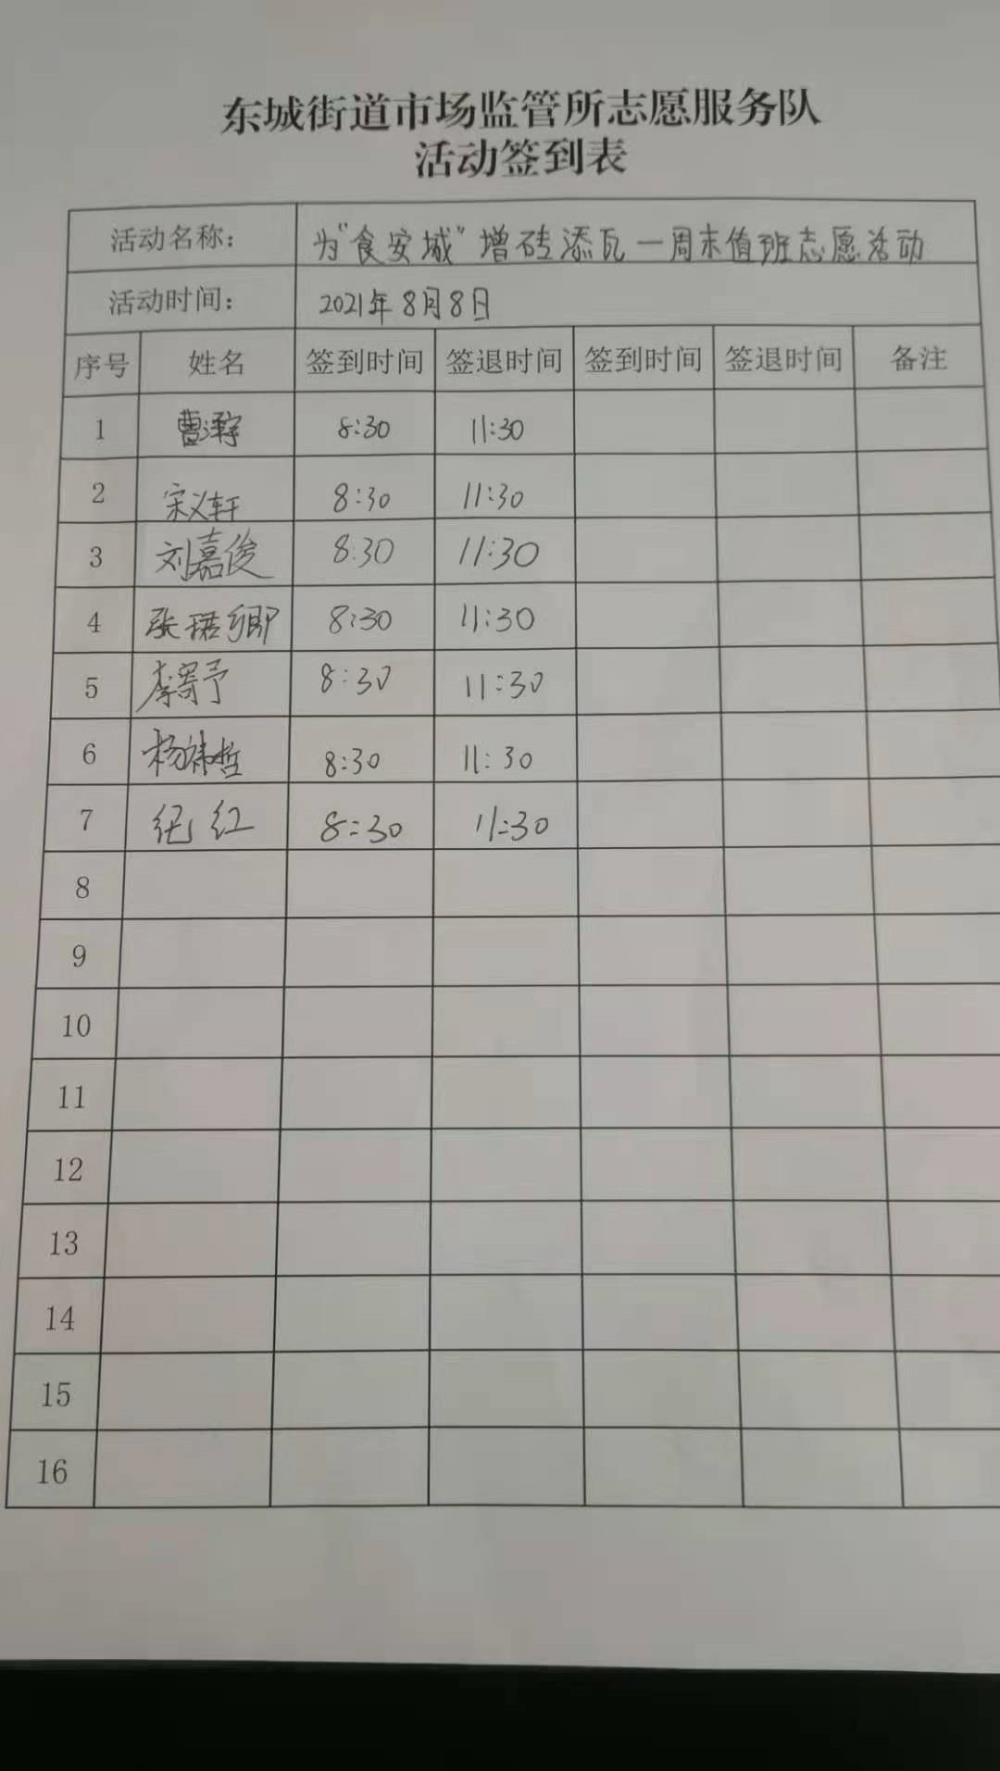 东城街道市场监管所志愿服务队
活动签到表
活动名称: 为"食安城"增砖添瓦—周末值班志愿活动
活动时间: 2021年8月8日
序号 姓名 签到时间 签退时间 签到时间 签退时间 备注
1 8:30 11:30
2 宋义轩 8:30 11:30
3 刘嘉俊 8:30 11:30
4 张珺卿 8:30 11:30
5 李寄予 8:30 11:30
6 杨祎哲 8:30 11:30
7 纪红 8:30 11:30
8
9
10
11
12
13
14
15
16